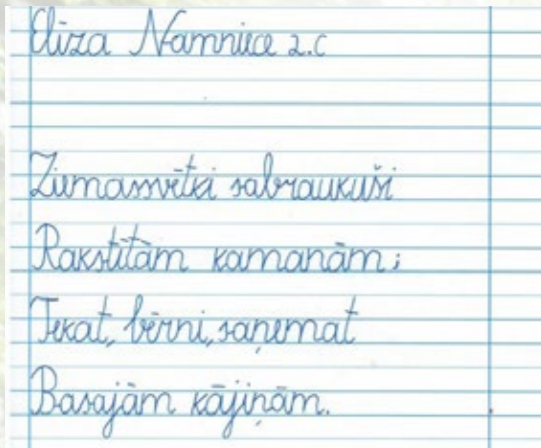 Elīza Namniece 2.c
Ziemassvētki sabraukuši
Rakstītām kamanām;
Tekat, bērni, saņemat
Basajām kājiņām.